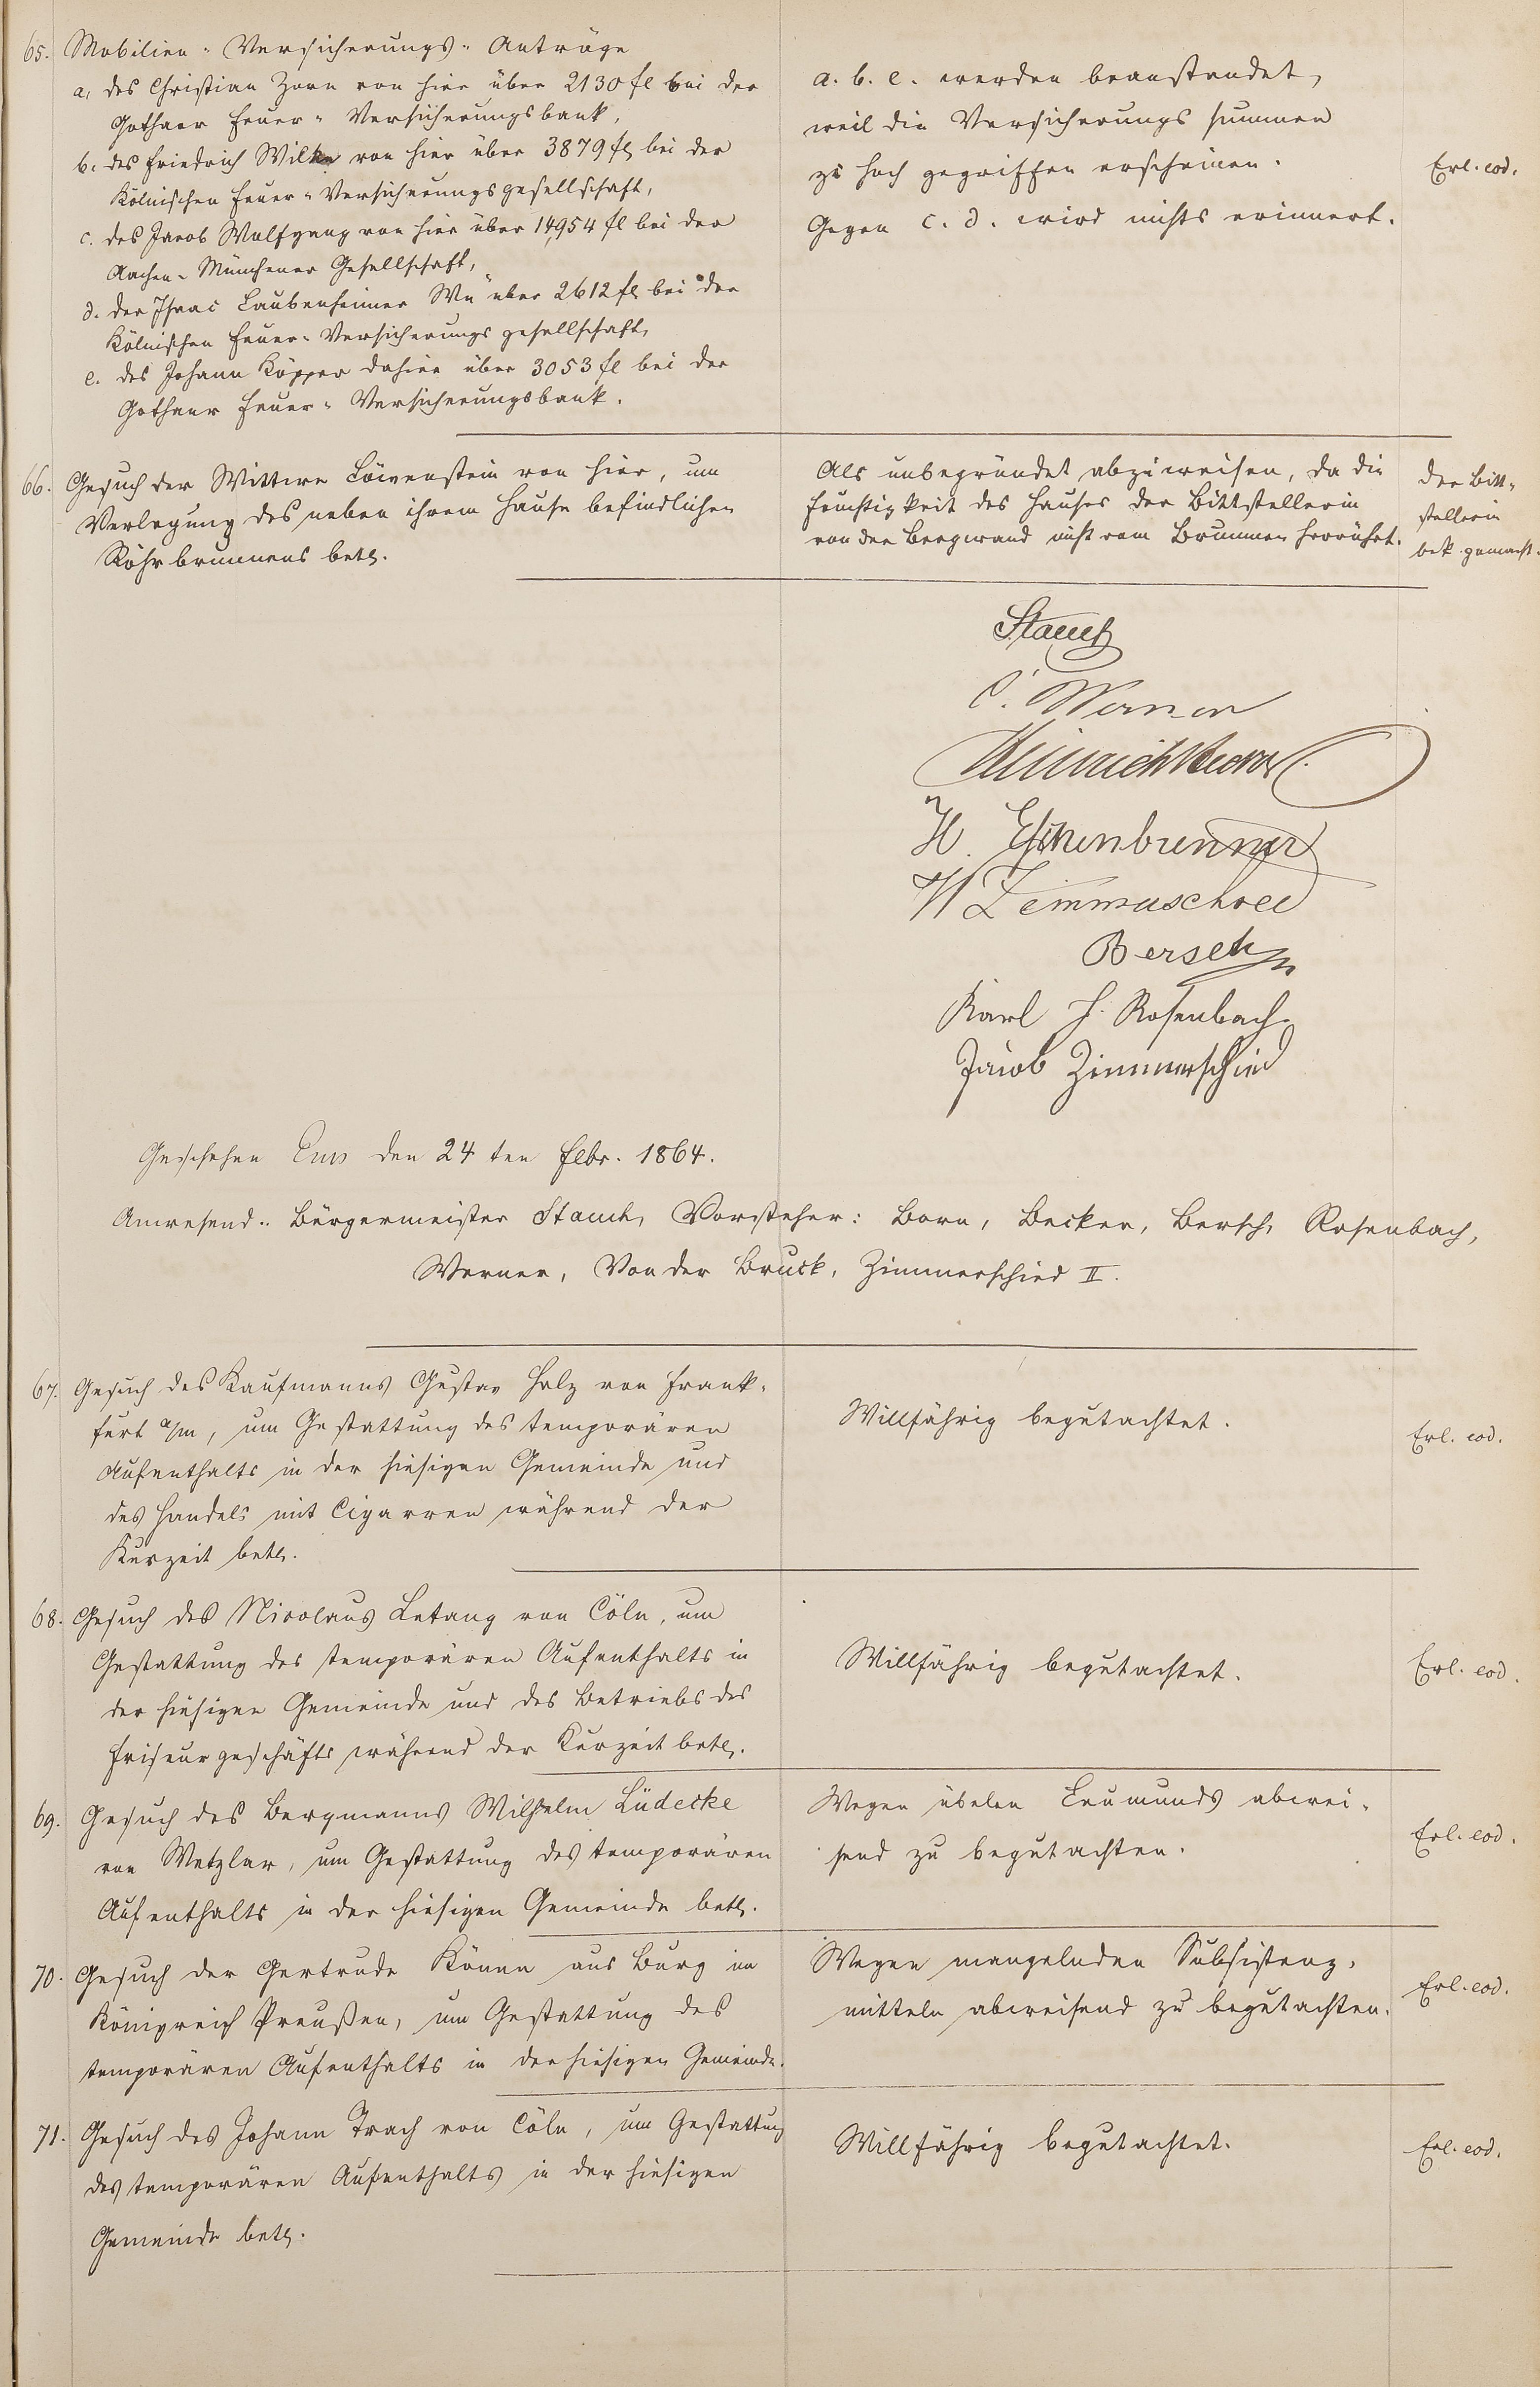 65. Mobilien-Versicherungs-Anträge
a, des Christian Zorn von hier über 2130 fl bei der
Gothaer Feuer-Versicherungsbank,
b. des Friedrich Wilke von hier über 3879 fl bei der
Kölnischen Feuer-Versicherungsgesellschaft,
c. des Jacob Wolfgang von hier über 14,954 fl bei der
Aachen-Münchener Gesellschaft,
d. der Isaac Laubenheimer We über 2612 fl bei der
Kölnischen Feuer-Versicherungsgesellschaft,
e. des Johann Köpper dahier über 3053 fl bei der
Gothaer Feuer-Versicherungsbank.
a. b. e. werden beanstandet,
weil die Versicherungssummen
zu hoch gegriffen erscheinen.
Gegen c. d. wird nichts erinnert.
Erl. eod.
66. Gesuch der Wittwe Löwenstein von hier, um
Verlegung des neben ihrem Hause befindlichen
Röhrbrunnens betr.
Als unbegründet abzuweisen, da die
Feuchtigkeit des Hauses der Bittstellerin
von der Bergwand nicht vom Brunnen herrührt.
der Bitt-
stellerin
bek. gemacht.
Stauch
C. Werner
Heinrich Becker
H. Eschenbrenner
W Zimmerschied
Bersch
Karl J. Rosenbach
Jacob Zimmerschied
Geschehen Ems den 24ten Febr. 1864.
Anwesend: Bürgermeister Stauch, Vorsteher: Born, Becker, Bersch, Rosenbach,
Werner, Von der Bruck, Zimmerschied II.
67. Gesuch des Kaufmanns Gustav Holz von Frank-
furt a/m, um Gestattung des temporären
Aufenthalts in der hiesigen Gemeinde und
des Handels mit Cigarren während der
Kurzeit betr.
Willfährig begutachtet.
Erl. eod.
68. Gesuch des Nicolaus Letang von Cöln, um
Gestattung des temporären Aufenthalts in
der hiesigen Gemeinde und des Betriebs des
Friseurgeschäfts während der Kurzeit betr.
Willfährig begutachtet.
Erl. eod.
69. Gesuch des Bergmanns Wilhelm Lüdecke
von Wetzlar, um Gestattung des temporären
Aufenthalts in der hiesigen Gemeinde betr.
Wegen üblen Leumunds abwei-
send zu begutachten.
Erl. eod.
70. Gesuch der Gertrude Könen aus Burg im
Königreich Preußen, um Gestattung des
temporären Aufenthalts in der hiesigen Gemeinde.
Wegen mangelnden Subsistenz-
mitteln abweisend zu begutachten.
Erl. eod.
71. Gesuch des Johann Trach von Cöln, um Gestattung
des temporären Aufenthalts in der hiesigen
Gemeinde betr.
Willfährig begutachtet.
Erl. eod.